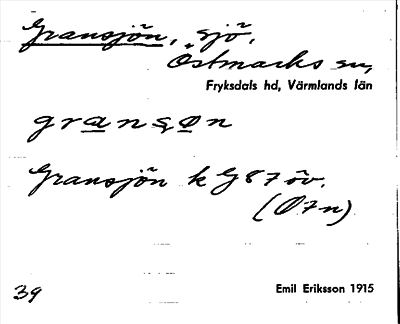 Gransjön, sjö,
Östmarks sn,
Fryksdals hd, Värmlands län
gransøn
Gransjön k G87 öv.
(Ø7n)
39
Emil Eriksson 1915